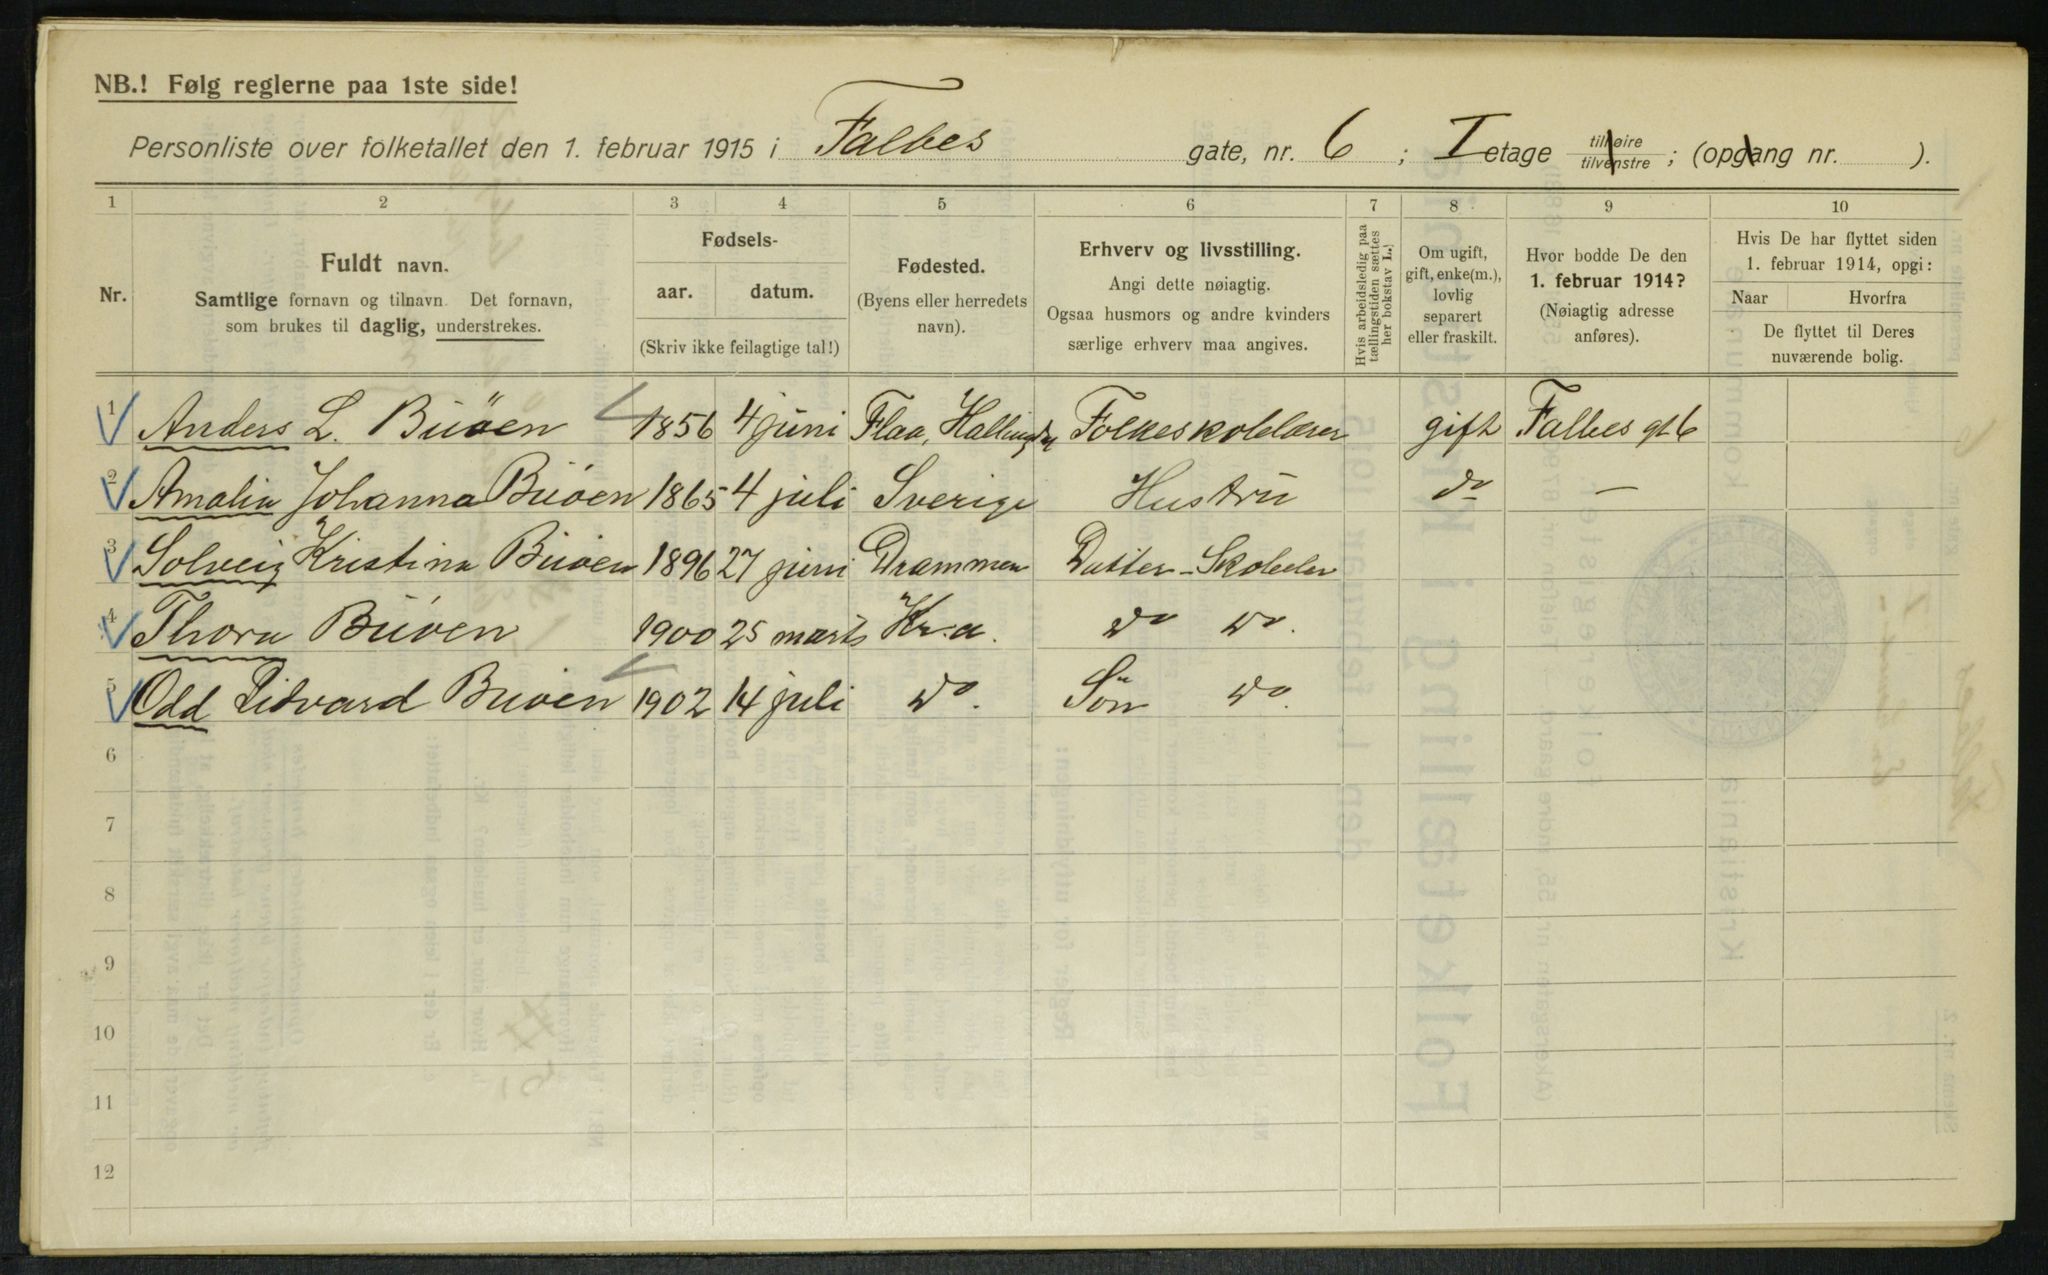 NB.! Følg reglerne paa 1ste side!
Personliste over folketallet den 1. februar 1915 i Falbes gate, nr. 6; I etage tilhøire tilvenstre; (opgang nr. ).
1 2 3 4 5 6 7 8 9 10
Nr.
Fuldt navn.
Samtlige fornavn og tilnavn. Det fornavn,
som brukes til daglig, understrekes.
Fødsels-
aar. datum.
(Skriv ikke feilagtige tal!)
Fødested.
(Byens eller herredets
navn).
Erhverv og livsstilling.
Angi dette nøiagtig.
Ogsaa husmors og andre kvinders
særlige erhverv maa angives.
Hvis arbeidsledig paa
tællingstiden sættes
her bokstav L.!
Om ugift,
gift, enke(m.),
lovlig
separert
eller fraskilt.
Hvor bodde De den
1. februar 1914?
(Nøiagtig adresse
anføres).
Hvis De har flyttet siden
1. februar 1914, opgi:
Naar Hvorfra
De flyttet til Deres
nuværende bolig.
1 Anders L. Buøen 1856 4 juni Flaa, Hallingdal Folkeskolelærer gift Falbes gt 6
2 Amalia Johanna Buøen 1865 4 juli Sverige Hustru do —
3 Solveig Kristina Buøen 1896 27 juni Drammen Datter - Skoleelev
4 Thora Buøen 1900 25 marts Kr.a. do do.
5 Odd Edvard Buøen 1902 14 juli do. Søn do.
6
7
8
9
10
11
12